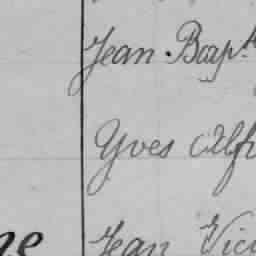 Jean Bapt
Yves Alfr
ne
Jean Vict